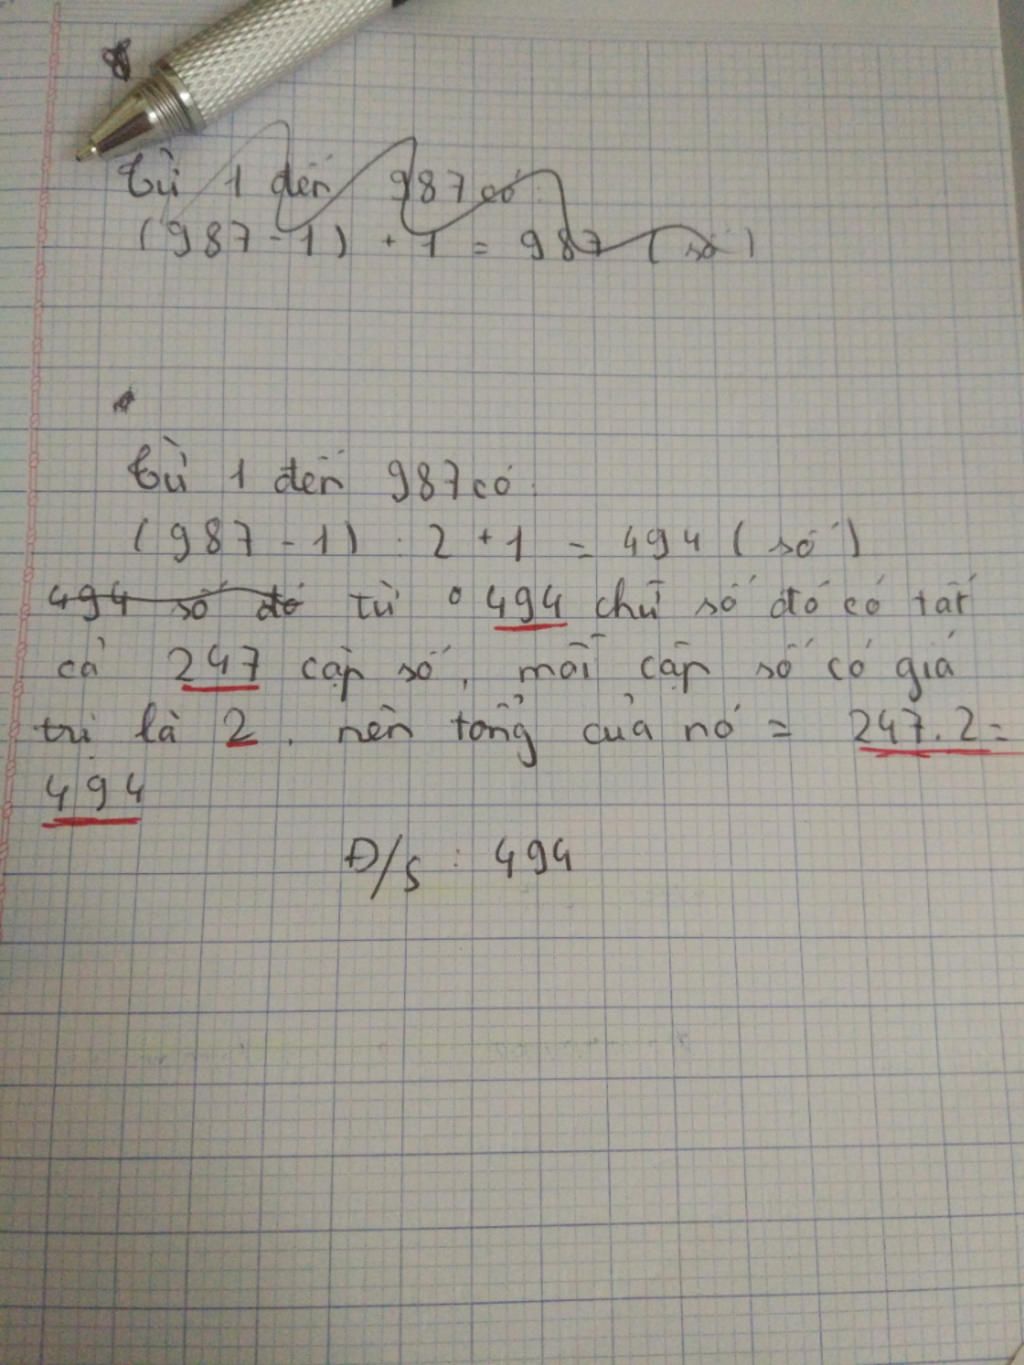 Từ 1 đến 987 có:
(987 - 1) + 1 = 987 (số)
Từ 1 đến 987 có:
(987 - 1) : 2 + 1 = 494 (số)
494 số đó từ 494 chữ số đó có tất
cả 247 cặp số, mỗi cặp số có giá
trị là 2, nên tổng của nó = 247.2=
494
Đ/S : 494